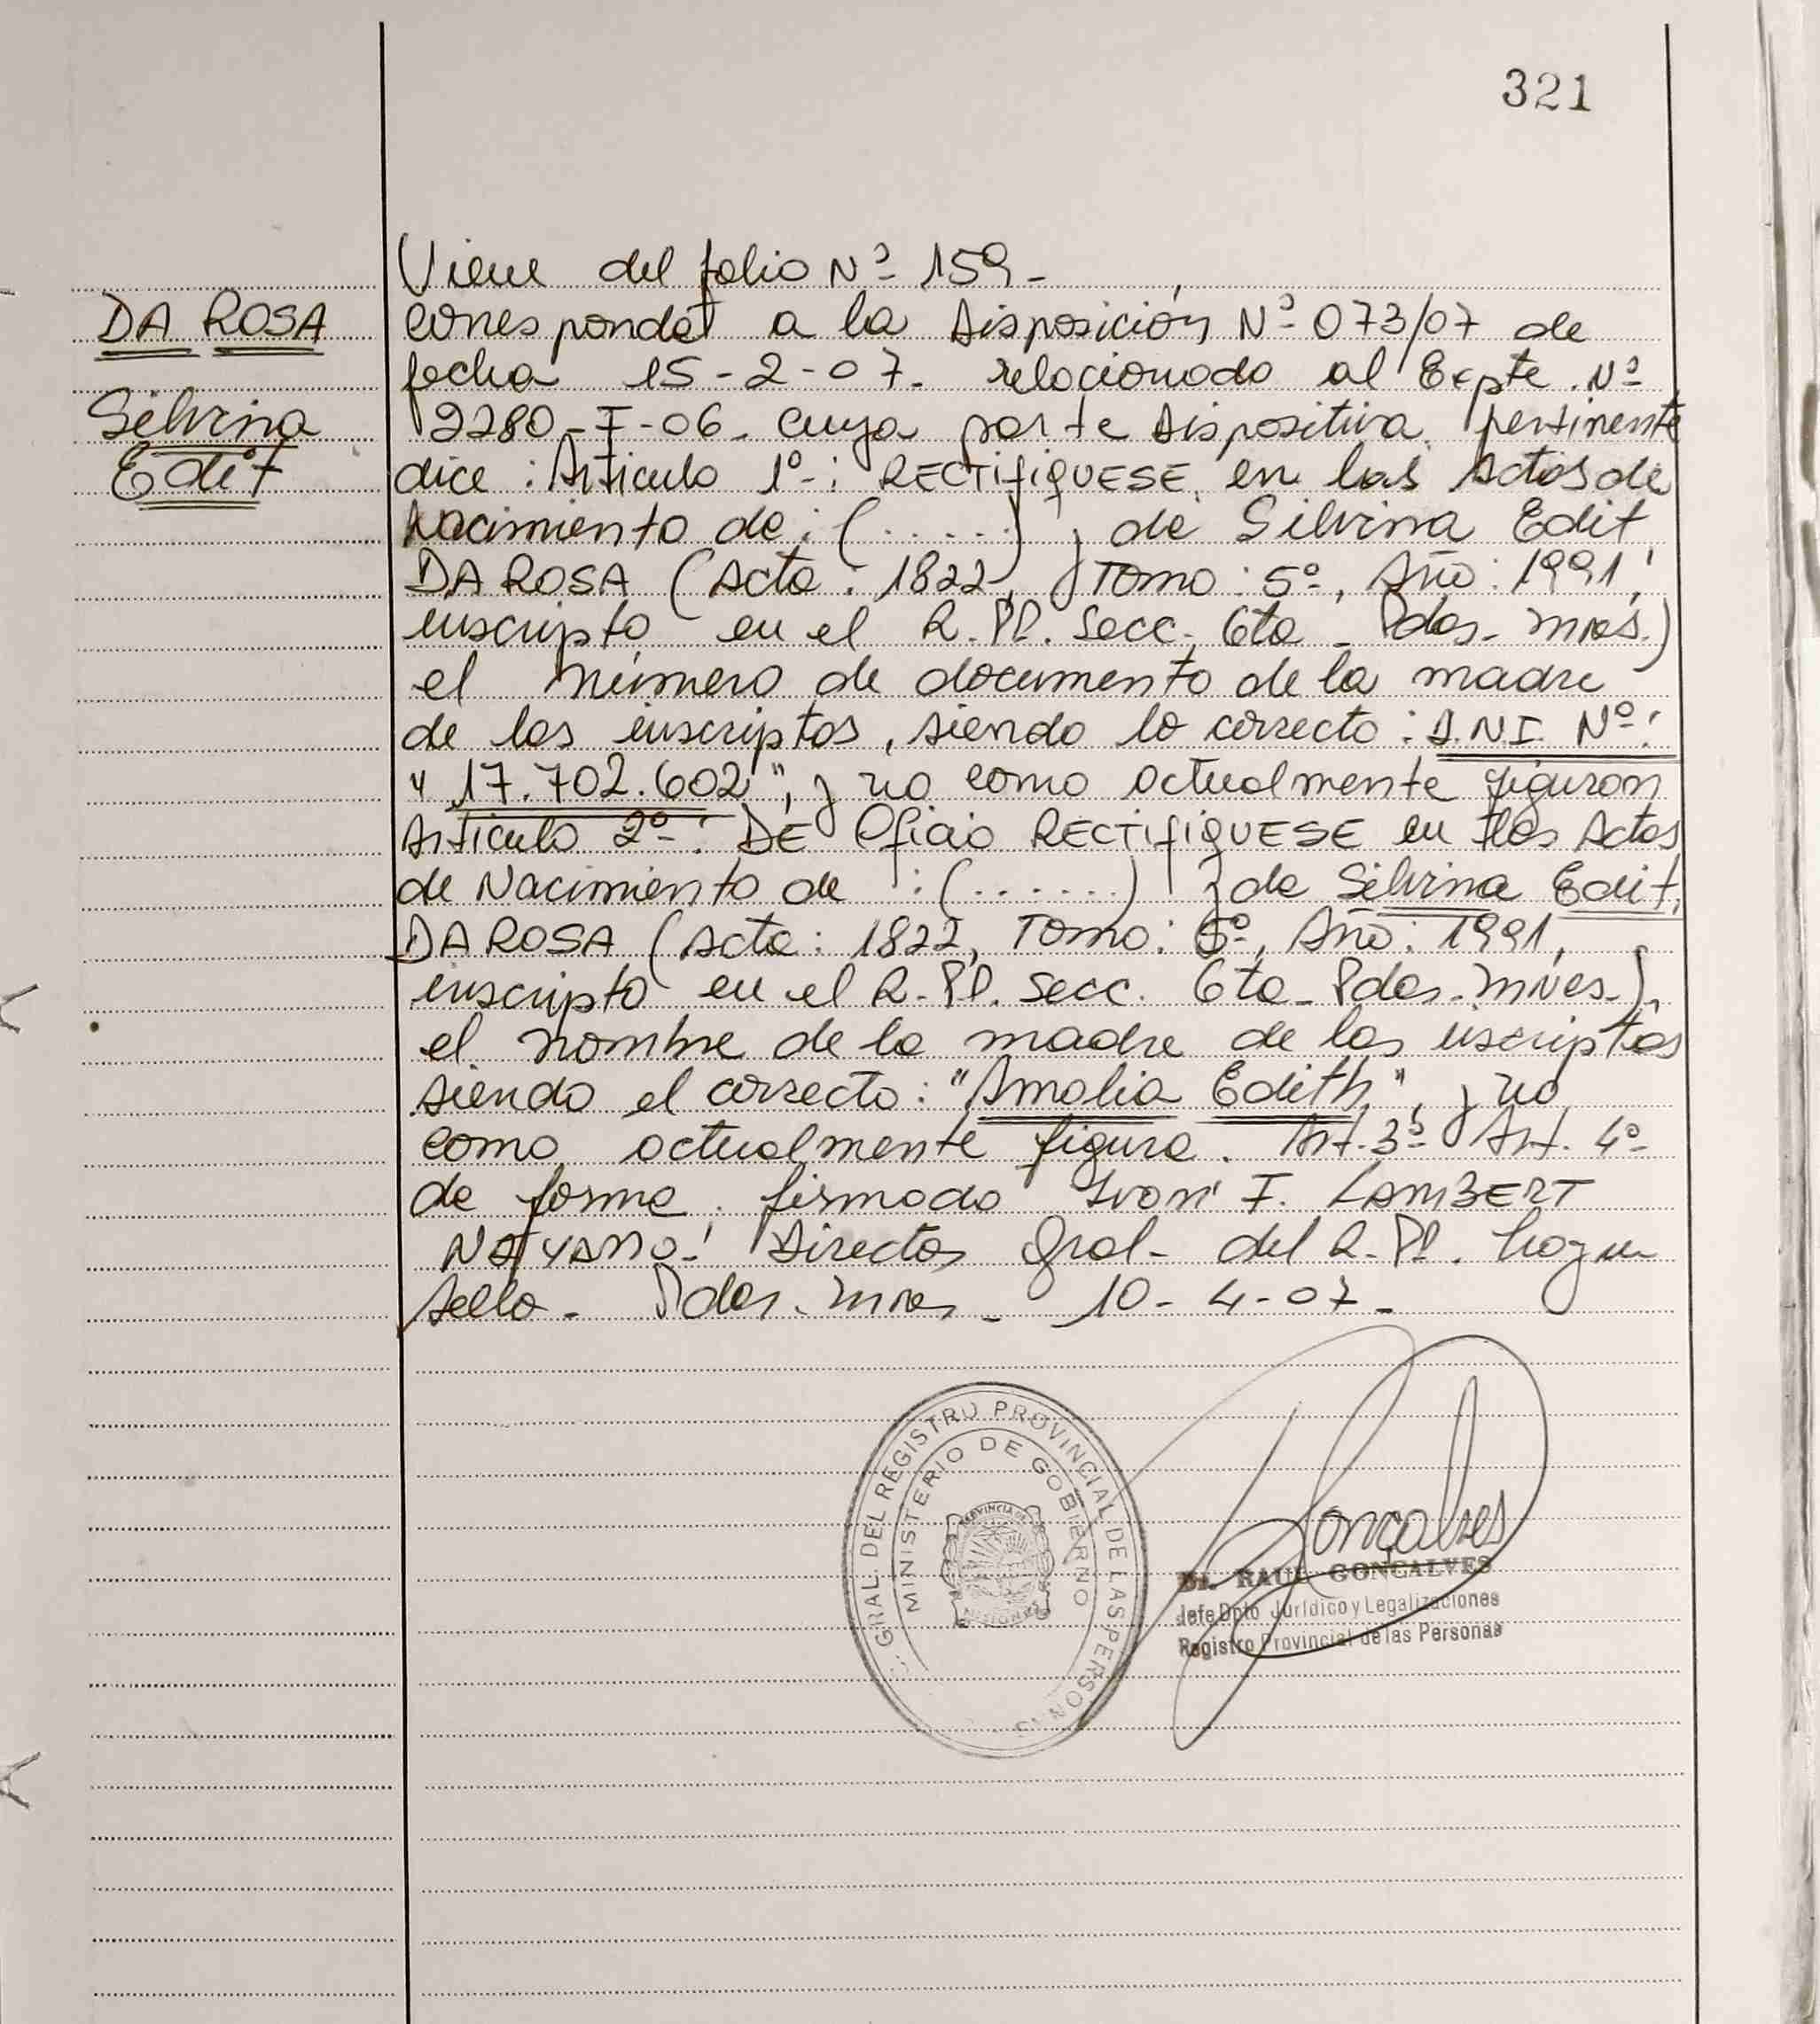 321
Viene del folio Nº 159-
DA ROSA
Corresponde a la Disposición Nº 073/07 de
fecha 15-2-07. relacionado al Expte. Nº
Silvina
2280-I-06. cuya parte dispositiva pertinente
Edit
dice: Articulo 1º-: RECTIFIQUESE en las Actas de
Nacimiento de: (.....) y de Silvina Edit
DA ROSA (Acta: 1822, Tomo: 5º, Año: 1991,
inscripta en el R.PP. Secc. 6ta - Pdas. Mnes.)
el número de documento de la madre
de los inscriptos, siendo lo correcto: D.N.I. Nº:
"17.702.602", y no como actualmente figuran
Articulo 2º-: DE Oficio RECTIFIQUESE en las Actas
de Nacimiento de: (......) y de Silvina Edit
DA ROSA (Acta: 1822, Tomo: 5º, Año: 1991,
inscripta en el R.PP. Secc. 6ta - Pdas. Mnes.)
el nombre de la madre de los iscriptos
siendo el correcto: "Amalia Edith", y no
como actualmente figura. Art. 3º y Art. 4º-
de forma. firmado I. LAMBERT
Director Gral- del R.PP. hay un
sello - Pdas. Mnes - 10-4-07-
GRAL. DEL REGISTRO PROVINCIAL DE LAS PERSONAS
MINISTERIO DE GOBIERNO
PROVINCIA DE
MISIONES
Gonçalves
Dr. RAUL GONÇALVES
Jefe Dpto Jurídico y Legalizaciones
Registro Provincial de las Personas